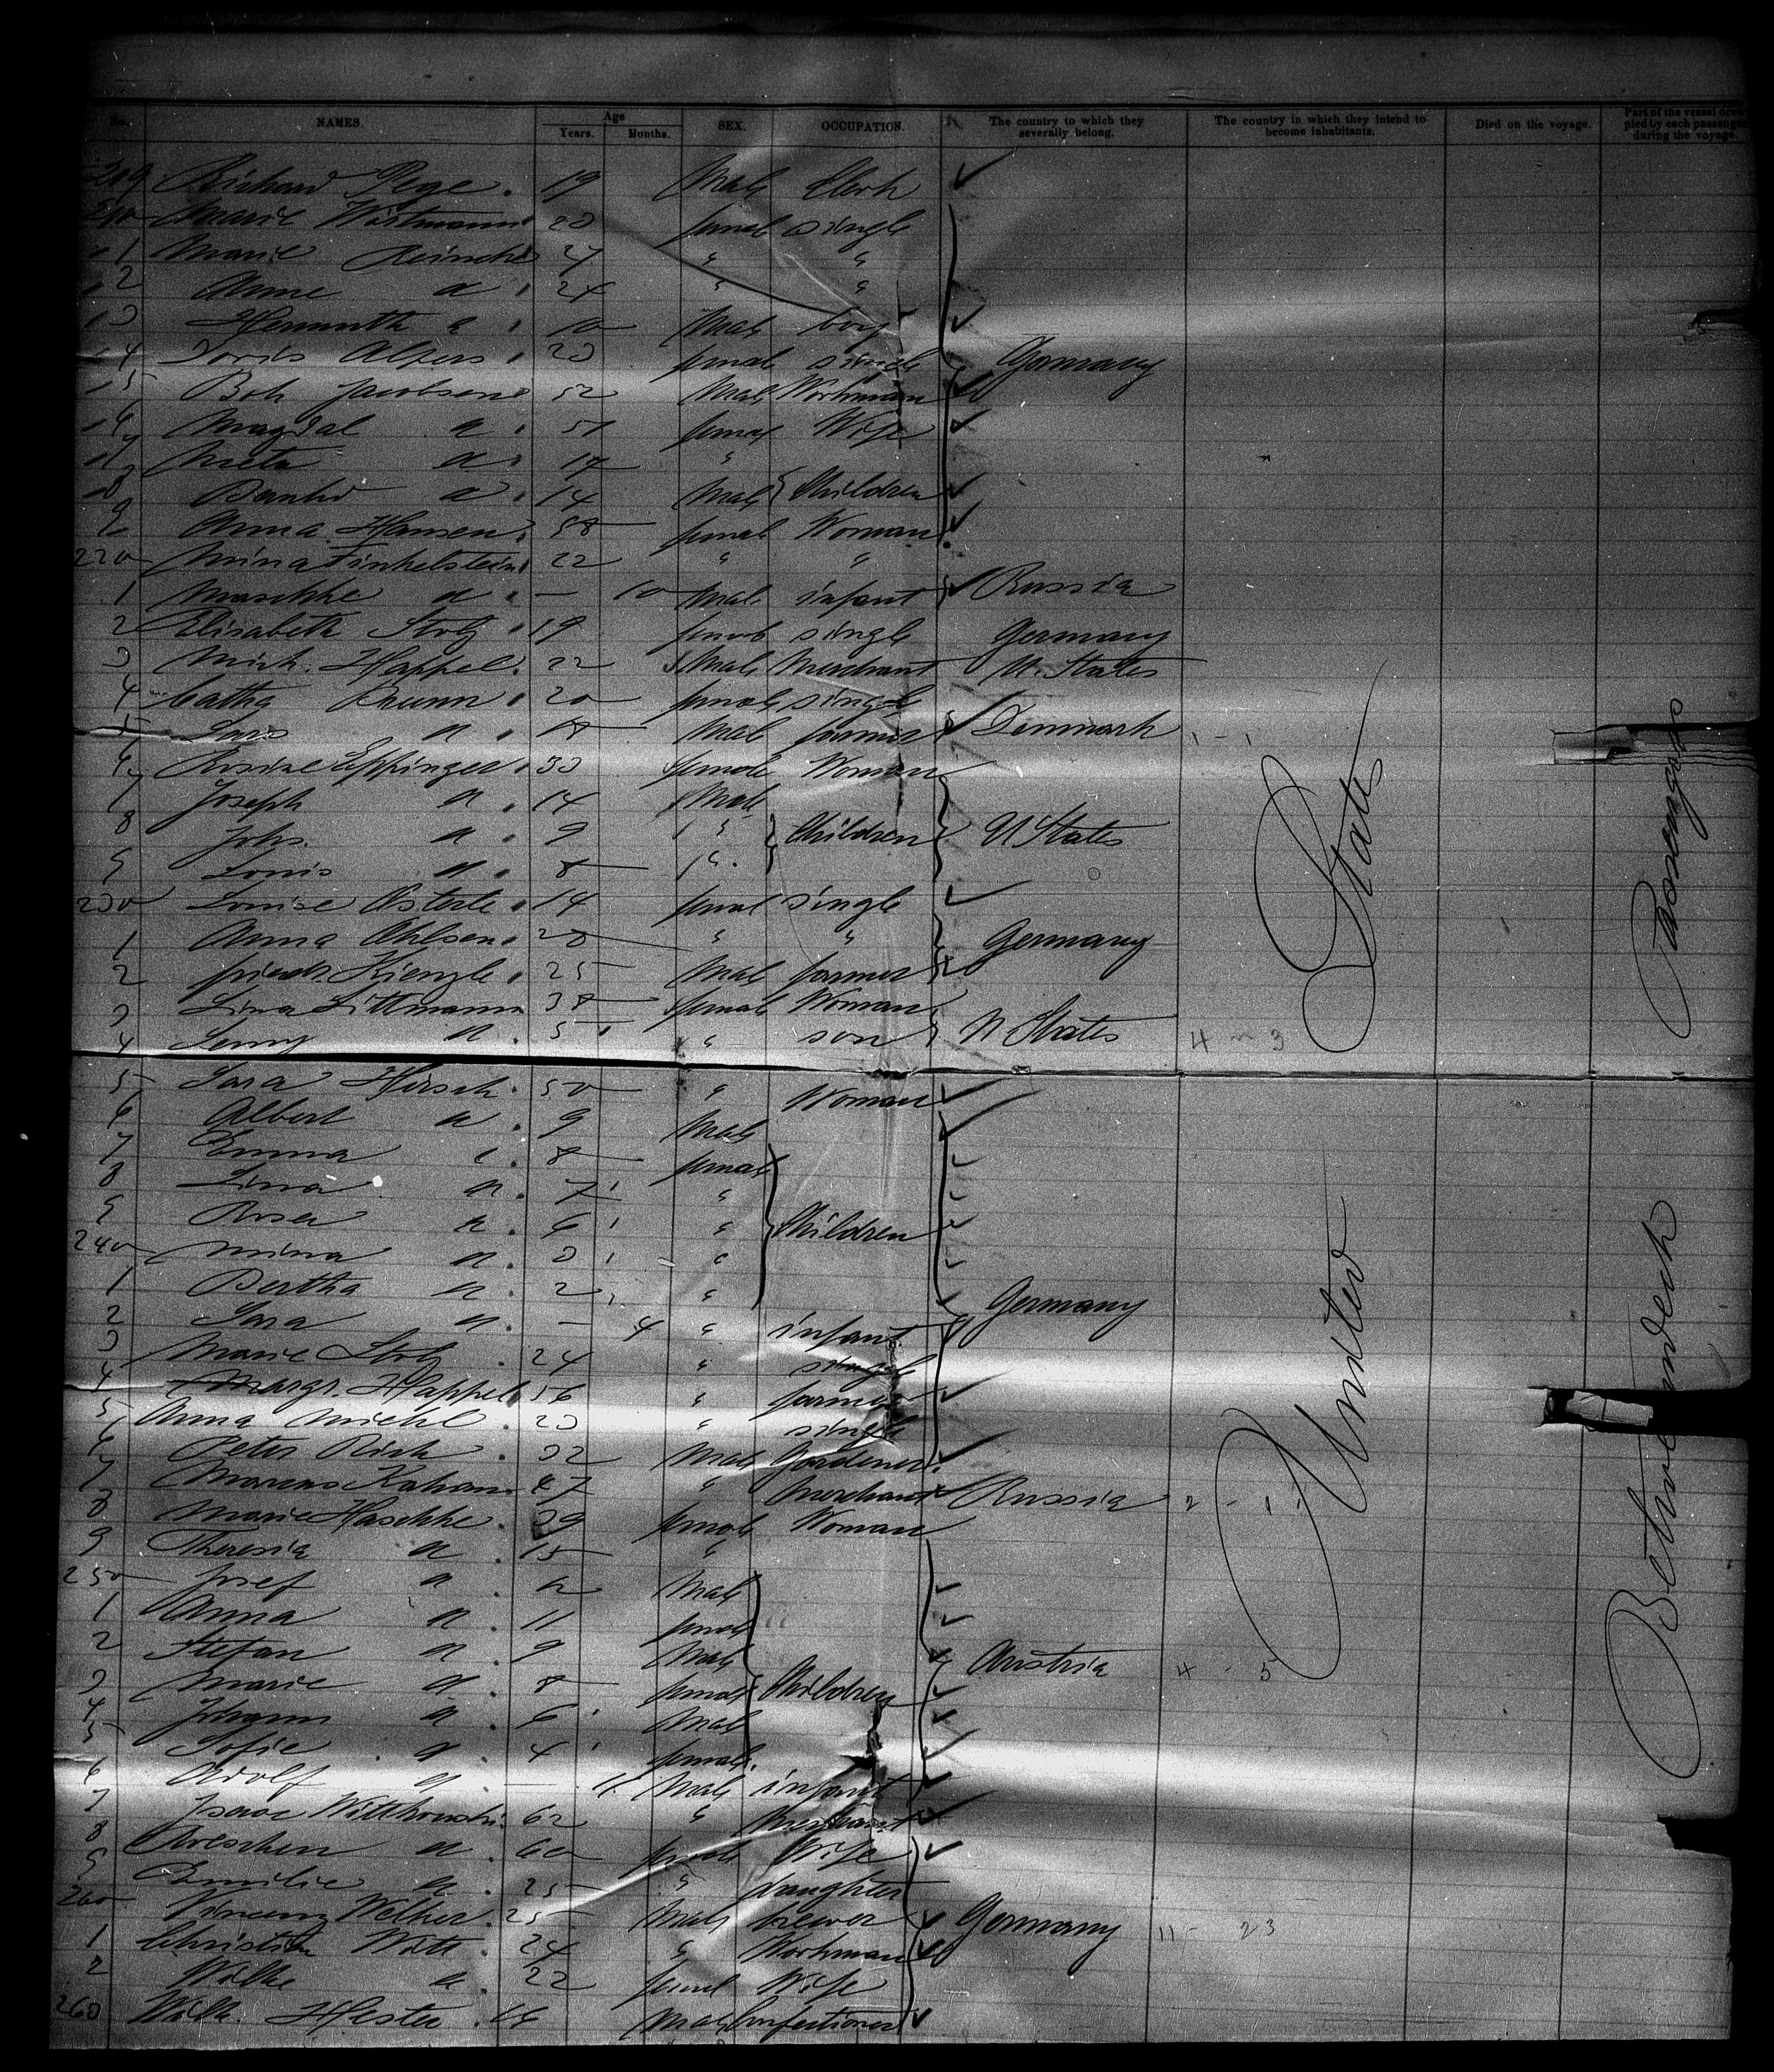 No. NAMES. Age Years. Months. SEX. OCCUPATION. The country to which they severally belong. The country in which they intend to become inhabitants. Died on the voyage. Part of the vessel occupied by each passenger during the voyage.
209 Richard Pege. 19 Male Clerk
210 Marie Wortmann 20 female single
11 Marie Reinecke 27 " "
12 Anne a 24 " "
13 Hermuth a 10 Male boy
14 Doris Alpers 20 female single Germany
15 Boh Jacobsen 52 Male Workman
16 Magdal a 51 female Wife
17 Meta a 17 "
18 a 14 Male Children
19 Anna Hansen 58 female Woman
220 Mina Finkelstein 22 " "
1 Maschke a — 10 Male infant Russia
2 Elisabeth Stolz 19 female single Germany
3 Mich. Happel. 22 Male Merchant U. States
4 Cathg Brunn 20 female single
5 Lars a Male farmer Denmark 1 - 1
6 Rosine Eppinger 33 female Woman
7 Joseph a 14 Male
8 Johs. a 9 " Children U States
9 Louis a 8 "
230 Louise Osterle 14 female single
1 Anna Ohlsen 20 " " Germany
2 friedr. Kienzle 25 Male farmer
3 Lina Littmann 38 female Woman
4 Leny a 5 " son U States 4 - 3
5 Sara Hirsch 50 " Woman
6 Albert a 9 Male
7 Emma a 8 female
8 Lina a 7 "
9 Rosa a 6 " Children
240 Mina a 3 "
1 Bertha a 2 " Germany
2 Sara a — 4 " infant
3 Marie Stolz 24 " single
4 Margr. Happel 56 " farmer
5 Anna Michl 20 " single
6 Peter Rick 32 Male Gardener
7 Marcus Kahan 47 " Merchant Russia 2 - 1
8 Marie Haschke 39 female Woman
9 Theresia a 15 "
250 Josef a Male
1 Anna a 11 female
2 Stefan a 9 Male Austria 4 - 5
3 Marie a 8 female Children
4 Johann a 6 Male
5 Sofie a 4 female
6 Adolf a — Male infant
7 Isaac Wittkowski 62 " Merchant
8 a 60 female Wife
9 Emilie a 25 " daughter
260 Vincenz Welker 25 Male brewer Germany 11 - 23
1 Christian Witt 24 " Workman
2 a 22 female Wife
260 Wilh. Hester 16 Male Confectioner
United States
Betweendeck Passengers